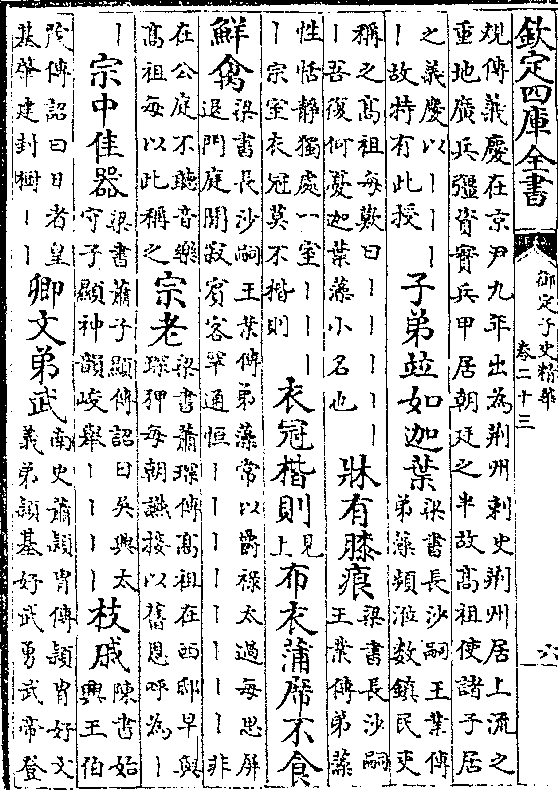 欽定四庫全書
御定子史精華
卷二十三
六
規傳義慶在京尹九年出為荆州刺史荆州居上流之
重地廣兵彊資實兵甲居朝廷之半故高祖使諸子居
之義慶以丨丨丨丨
丨故特有此授
子弟竝如迦葉
梁書長沙嗣王業傳
弟藻頻涖數鎮民吏
稱之高祖每歎曰丨丨丨丨丨
丨吾復何憂迦葉藻小名也
牀有膝痕
梁書長沙嗣
王業傳弟藻
性恬静獨處一室丨丨丨
丨宗室衣冠莫不楷則
衣冠楷則
見
上
布衣蒲席不食
鮮禽
梁書長沙嗣王業傳弟藻常以爵祿太過每思屏
退門庭閒寂賓客罕通恒丨丨丨丨丨丨丨丨非
在公庭不聽音樂
高祖每以此稱之
宗老
梁書蕭琛傳高祖在西邸早與
琛狎每朝讌接以舊恩呼為丨
丨
宗中佳器
梁書蕭子顯傳詔曰吳興太
守子顯神韻峻舉丨丨丨丨
枝戚
陳書始
興王伯
茂傳詔曰日者皇
基肇建封樹丨丨
卿文弟武
南史蕭頴胄傳頴胄好文
義弟頴基好武勇武帝登